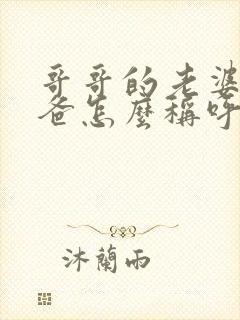 哥哥的老婆
爸怎麼稱呼
沐蘭雨